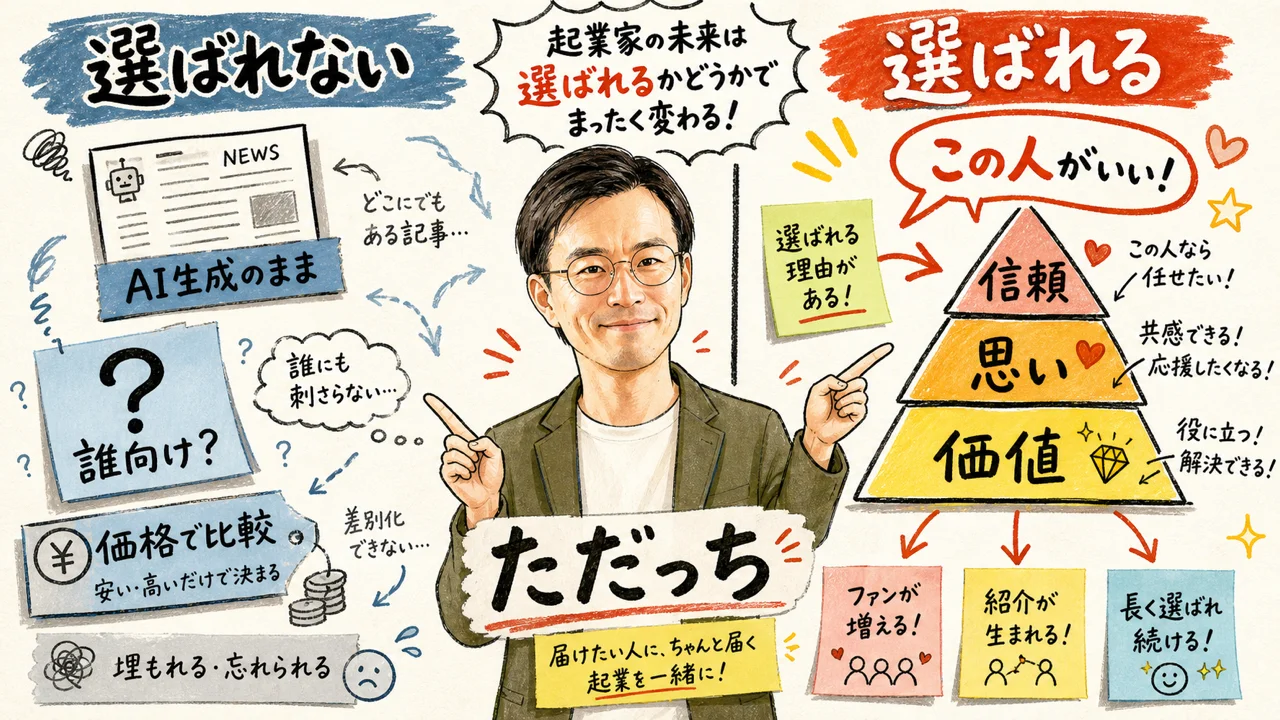 選ばれない
NEWS
AI生成のまま
どこにでも
ある記事…
?
誰向け？
誰にも
刺さらない…
¥
価格で比較
安い・高いだけで決まる
差別化
できない…
埋もれる・忘れられる
起業家の未来は
選ばれるかどうかで
まったく変わる！
ただっち
届けたい人に、ちゃんと届く
起業を一緒に！
選ばれる
この人がいい！
選ばれる
理由が
ある！
信頼
この人なら
任せたい！
思い
共感できる！
応援したくなる！
価値
役に立つ！
解決できる！
ファンが
増える！
紹介が
生まれる！
長く選ばれ
続ける！